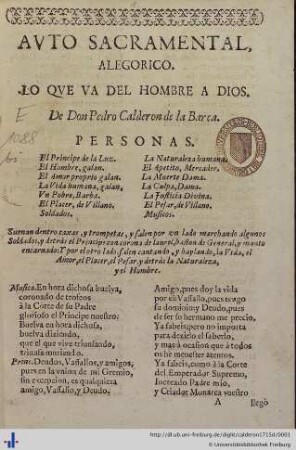 AVTO SACRAMENTAL,
ALEGORICO.
LO QVE VA DEL HOMBRE A DIOS.
De Don Pedro Calderon de la Barca.
PERSONAS.
El Principe de la Luz.
El Hombre, galan.
El Amor proprio galan.
La Vida humana, galan,
Vn Pobre, Barba.
El Placer, de Villano.
Soldados.
La Naturaleza humana.
El Apetito, Mercader.
La Muerte Dama.
La Culpa, Dama.
La Justicia Divina.
El Pesar, de Villano.
Musicos.
Suenan dentro caxas, y trompetas, y salen por un lado marchando algunos
Soldados, y detrás el Principe con corona de laurel, baston de General, y manto
encarnado: Y por el otro lado salen cantando, y baylando, la Vida, el
Amor, el Placer, el Pesar, y detrás la Naturaleza,
y el Hombre.
Musica. En hora dichosa buelva,
coronado de trofeos
à la Corte de su Padre
glorioso el Principe nuestro.
Buelva en hora dichosa,
buelva diziendo,
que el que vive triunfando,
triunfa muriendo.
Princ. Deudos, Vassallos, y amigos,
pues en la vnion de mi Gremio,
sin excepcion, es qualquiera
amigo, Vassallo, y Deudo.
Amigo, pues doy la vida
por èl: Vassallo, pues tengo
su dominio: y Deudo, pues
de ser su hermano me precio,
Ya sabeis, pero no importa
para dezirlo el saberlo,
y mas à ocasion que à todos
os he menester atentos.
Ya sabeis, como à la Corte
del Emperador Supremo,
Increado Padre mio,
y Celador Monarca vuestro
A llegò
E
1088
bi
http://dl.ub.uni-freiburg.de/diglit/calderon1715d/0001
© Universitätsbibliothek Freiburg